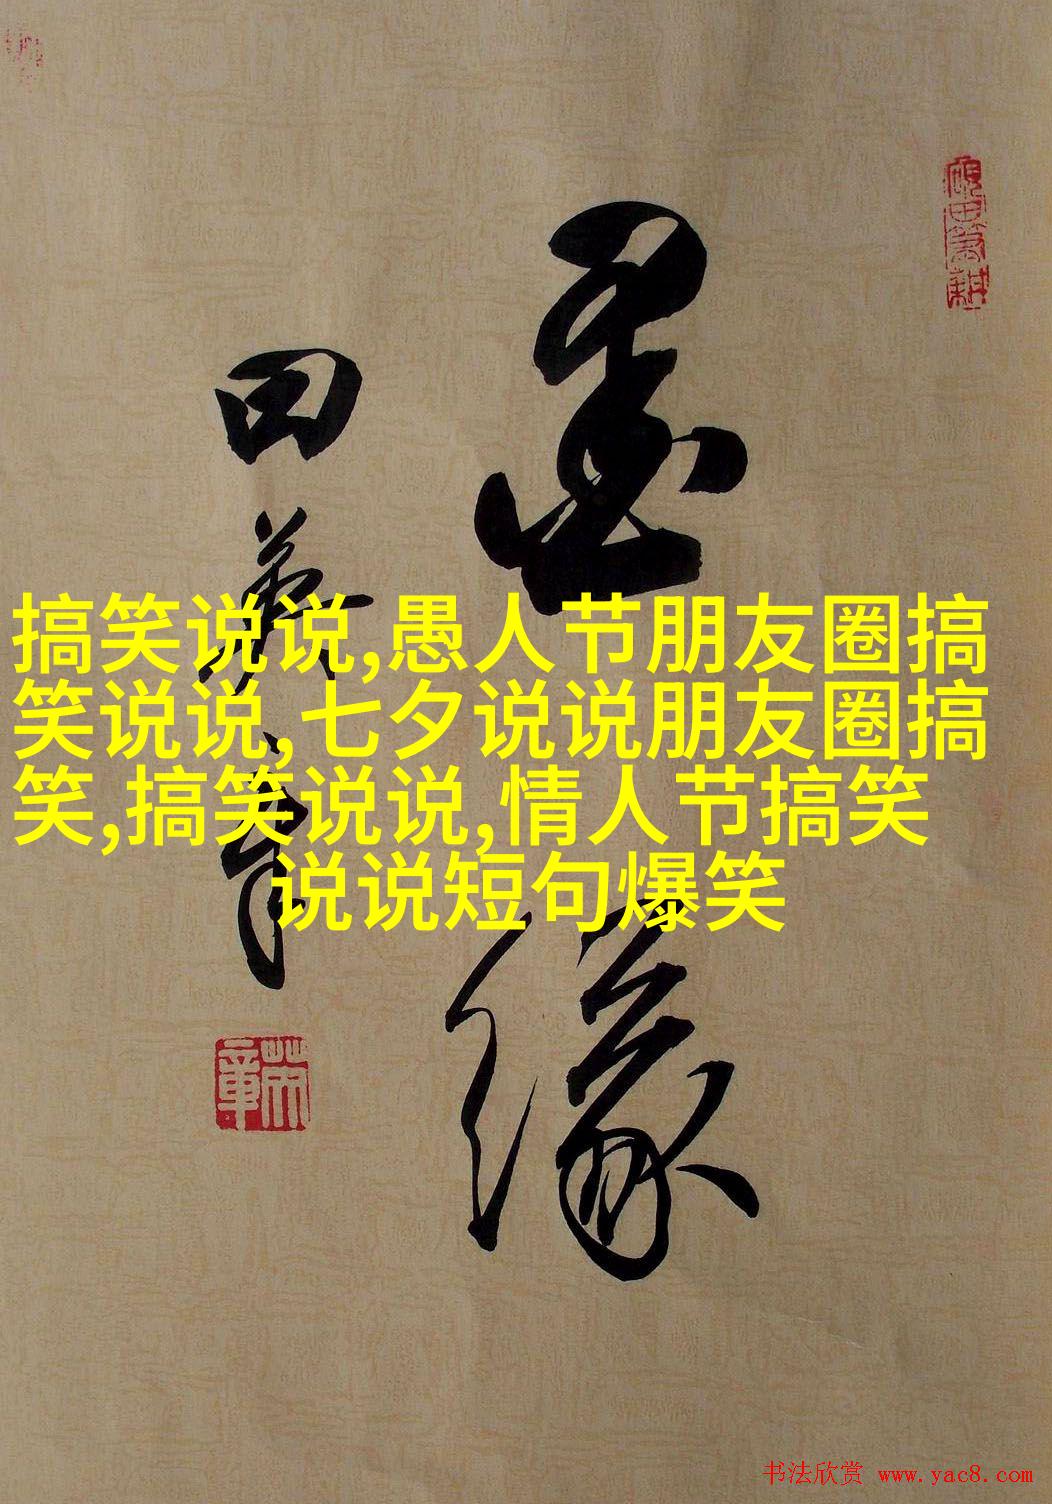 墨
缘
田英章
砚田笔耕
英章
搞笑说说,愚人节朋友圈搞
笑说说,七夕说说朋友圈搞
笑,搞笑说说,情人节搞笑
说说短句爆笑
书法欣赏 www.yac8.com